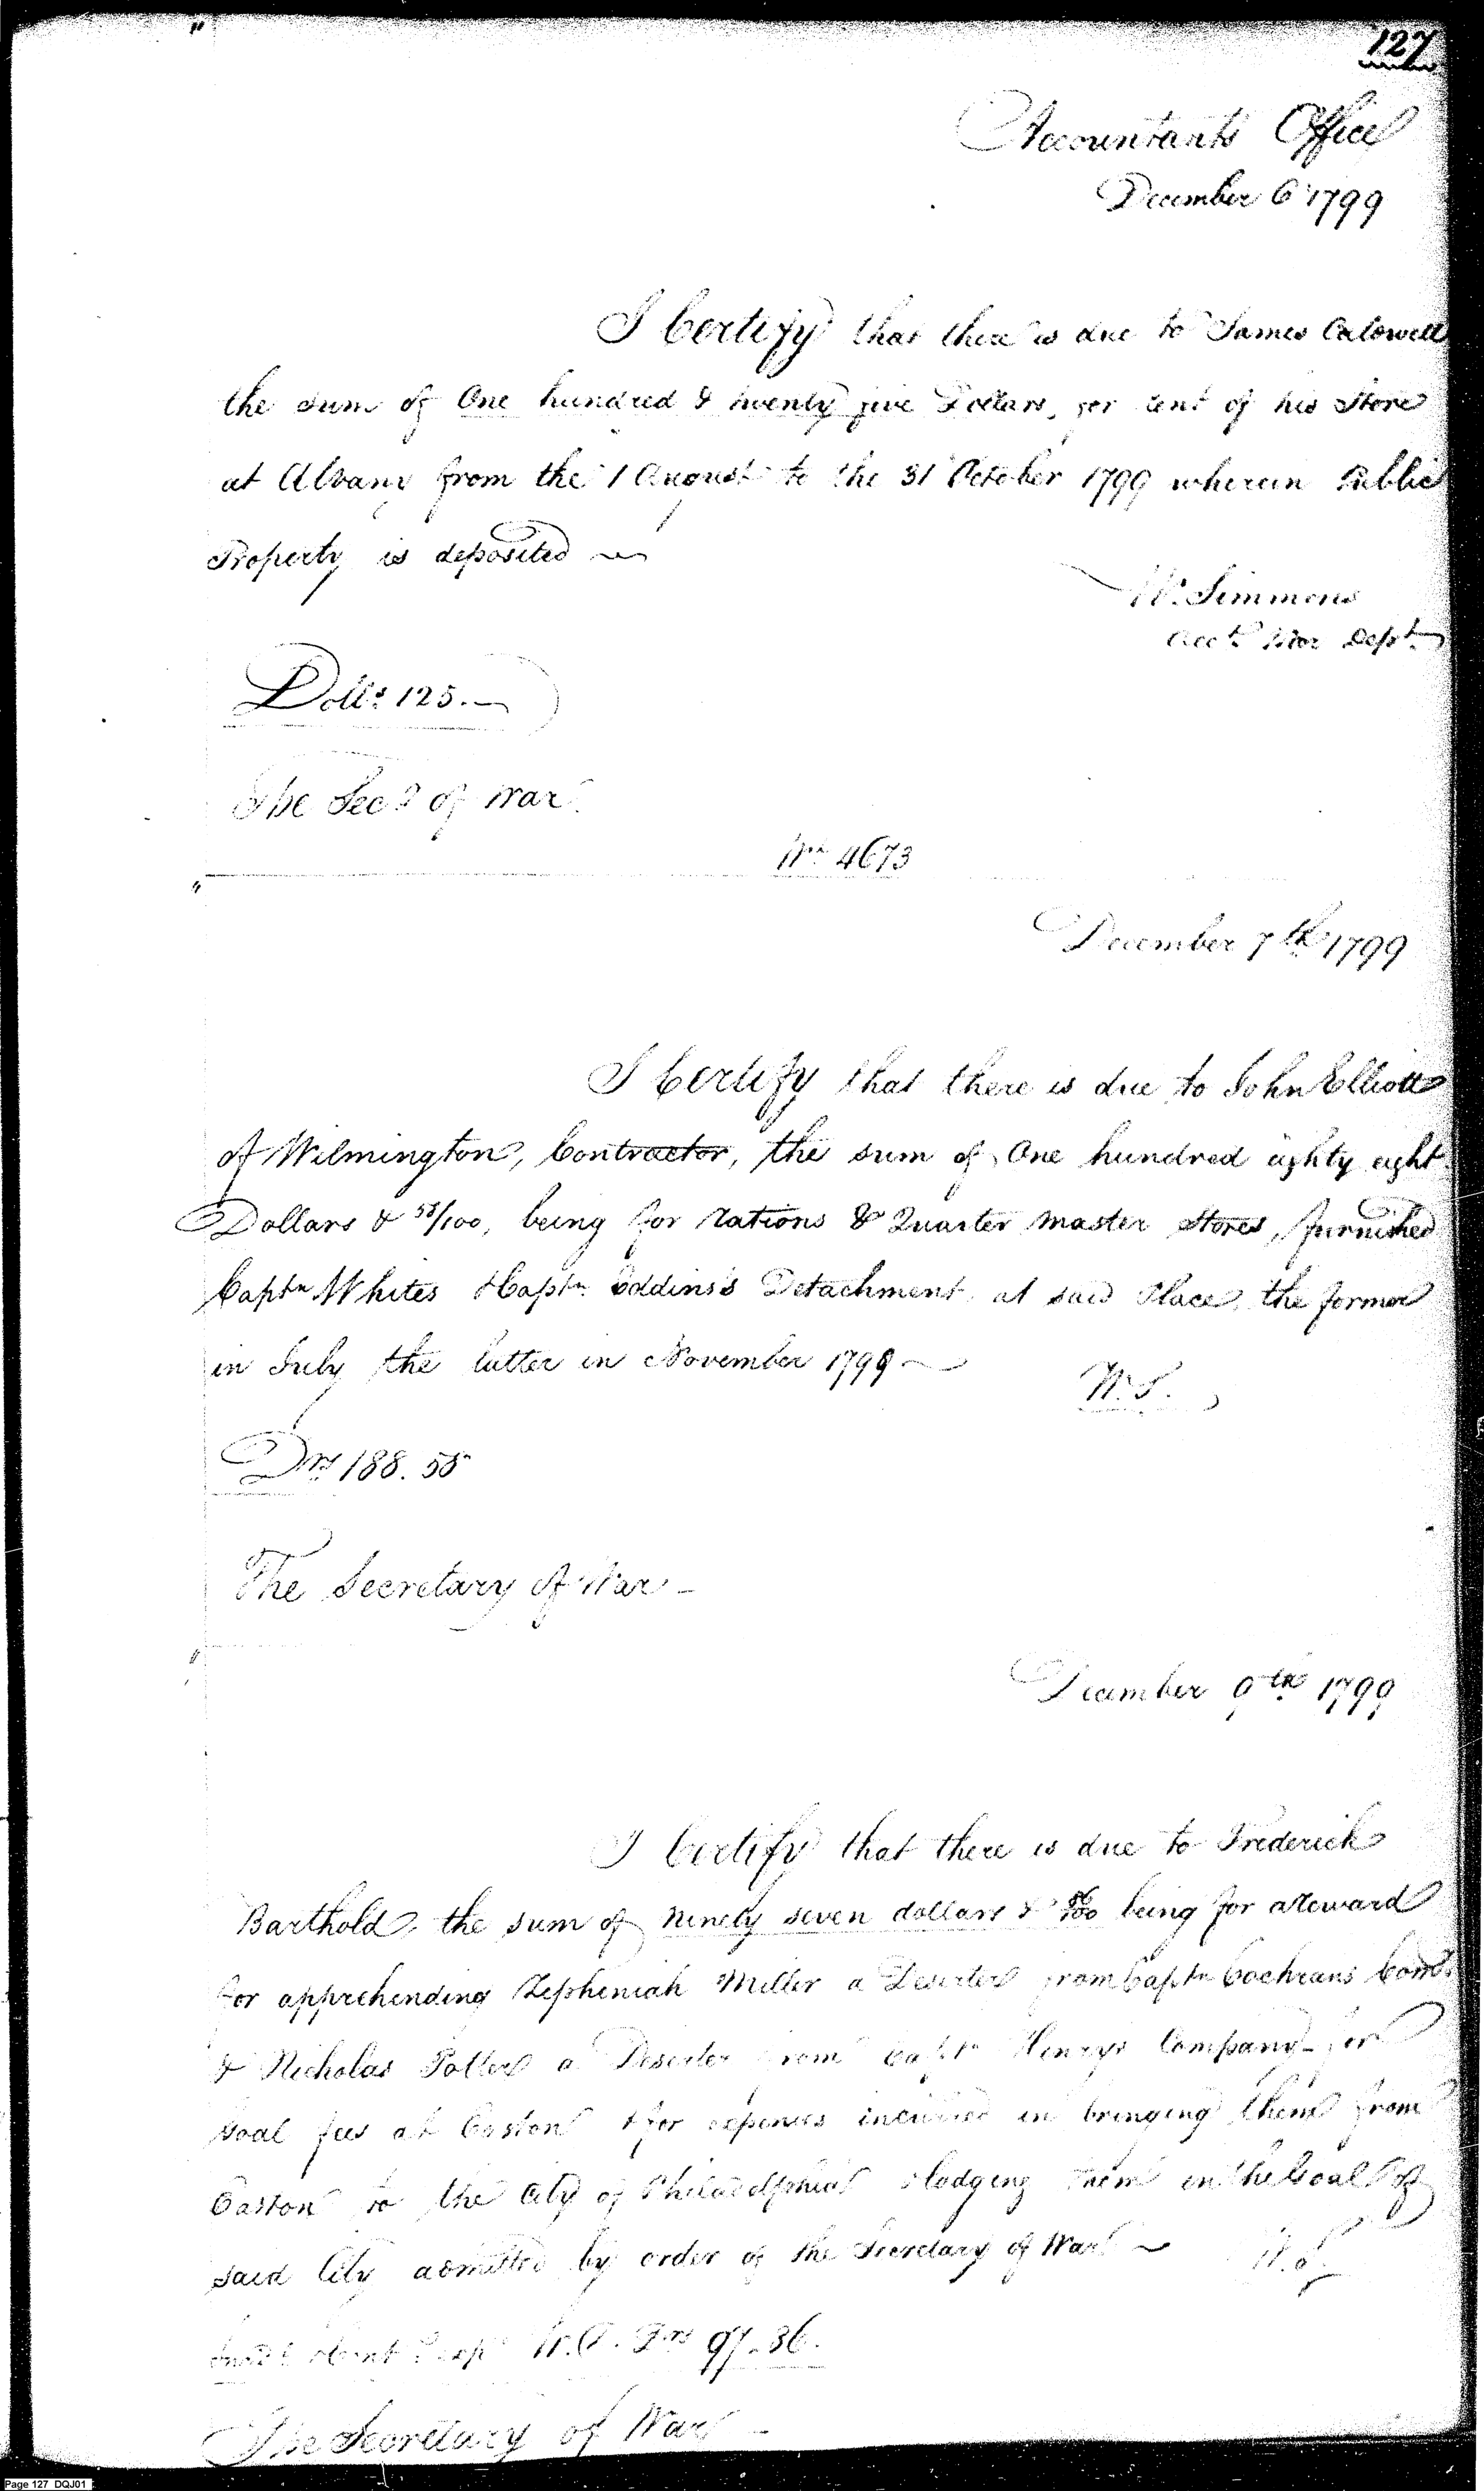 127
Accountants Office
December 6 1799
I Certify that there is due to James Calowell
the sum of One hundred & twenty five Dollars, for rent of his Store
at Albany from the 1 August to the 31 October 1799 wherein Public
Property is deposited
Wm. Simmons
Acct. War Dept.
Dolls. 125.—
The Secy of War
No. 4673
December 7th 1799
I Certify that there is due to John Elliott
of Wilmington, Contractor, the sum of One hundred eighty eight
Dollars & 58/100, being for rations & Quarter Master Stores, furnished
Captn Whites & Captn Eddins's Detachment at said Place, the former
in July the latter in November 1799
W. S.
Drs 188.58
The Secretary of War -
December 9th 1799
I Certify that there is due to Frederick
Barthold, the sum of ninety seven dollars & 36/100 being for a Reward
for apprehending Zepheniah Miller a Deserter from Captn Cochrans Comp.
& Nicholas Potter a Deserter from Captn Henrys Company for
Goal fees at Easton & for expences incurred in bringing them from
Easton to the City of Philadelphia & lodging them in the Goal of
said City admitted by order of the Secretary of War
W. S.
Drs 97.36.
The Secretary of War -
Page 127 DQJ01